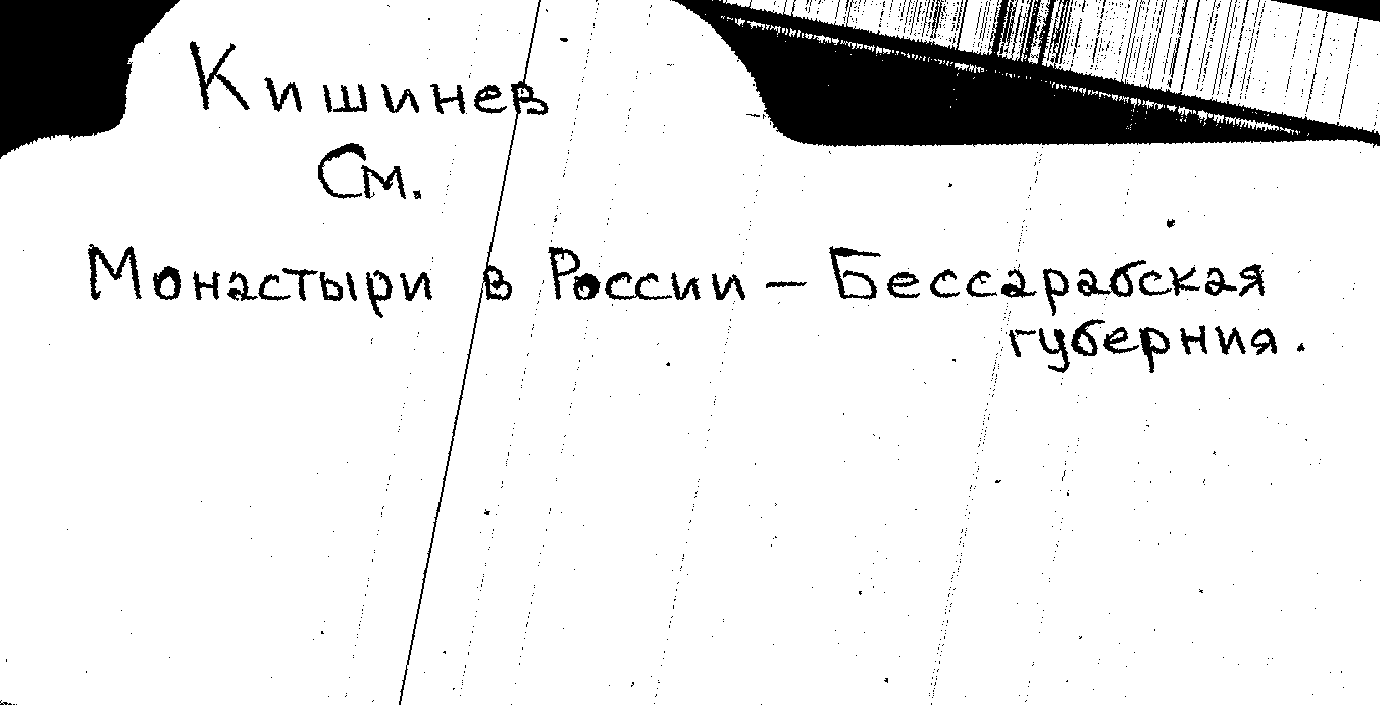 Кишинев
См.
Монастыри в России — Бессарабская
губерния.